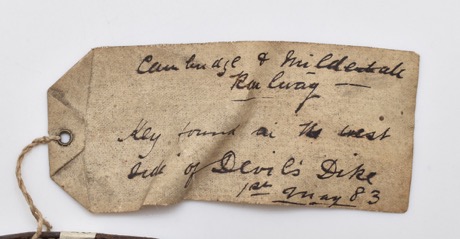 Cambridge & Mildenhall
Railway
Key found on the west
side of Devil's Dike
1st May 83